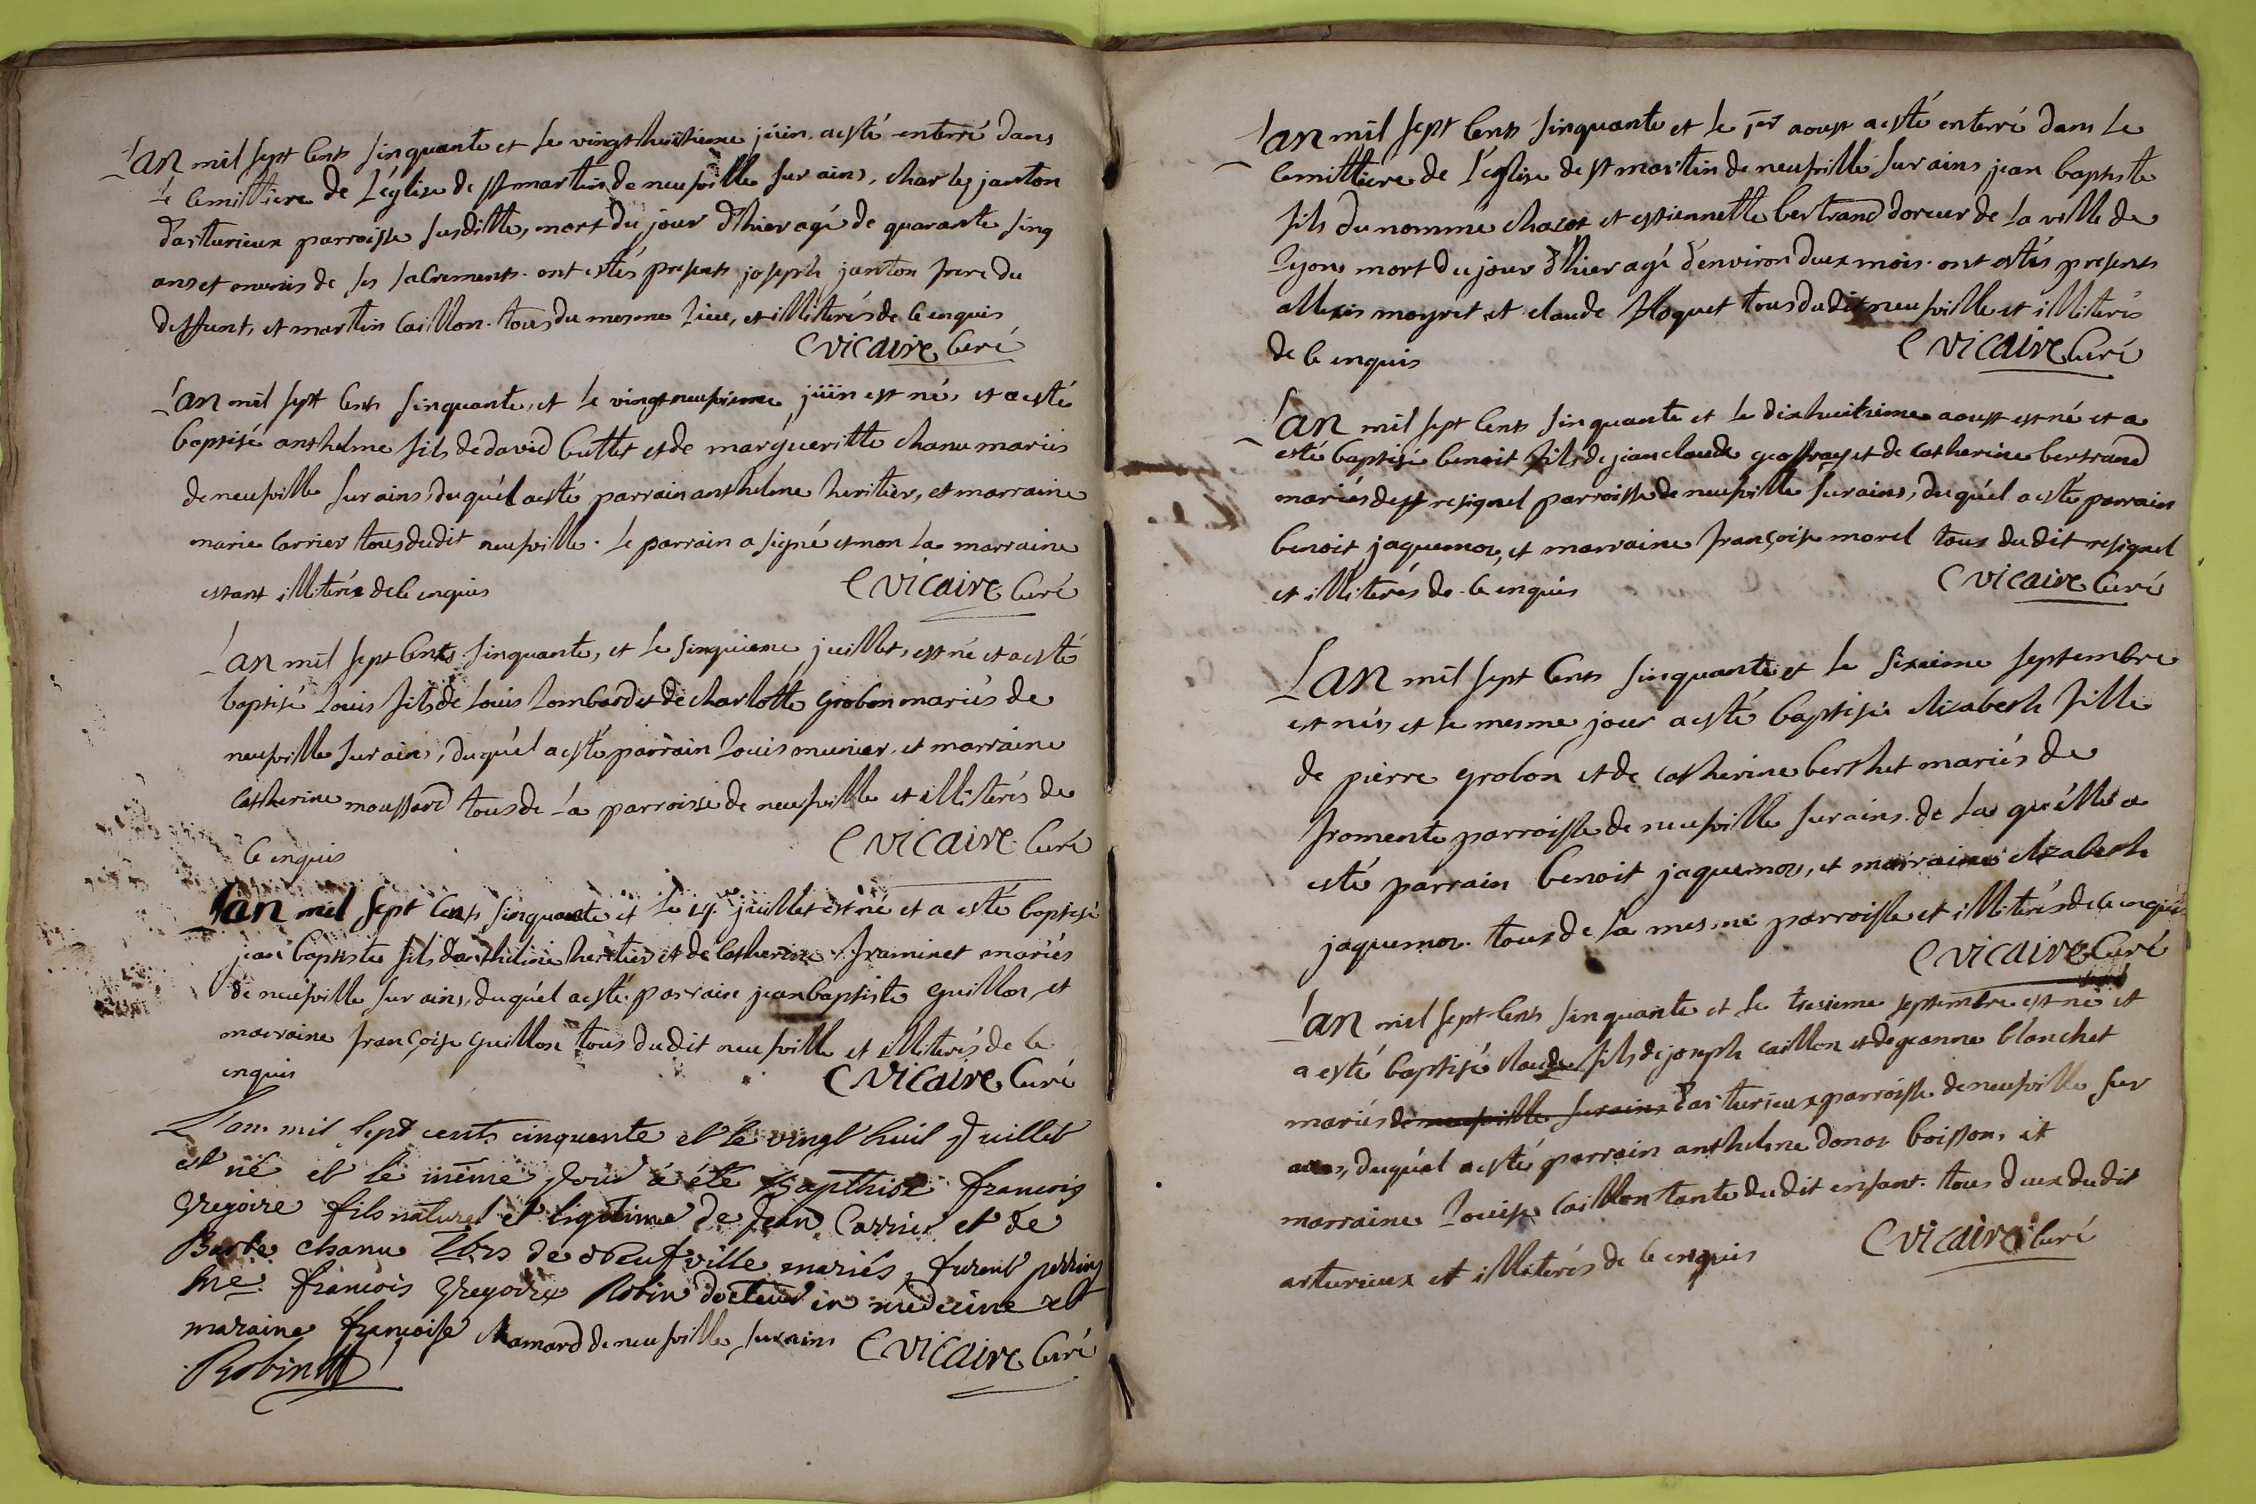 Lan mil sept Cents sinquante et le vingt huitieme juin a esté enterré dans
le Cemittiere de L'église de st martin de neufville sur ains, Charles janton
d'arturieux parroisse susditte, mort du jour d'hier agé de quarante sinq
ans et munis de ses sacrements. ont estés presents joseph janton frere du
deffunt, et martin Caillon. tous du mesme lieu, et illiterés de ce enquis
C vicaire Curé
Lan mil sept Cents sinquante, et le vingt neufvieme juin est né, et a esté
baptisé anthelme fils de david buttet et de margueritte Chanu mariés
de neufville sur ains, duquel a esté parrain anthelme heritier, et marraine
marie Carrier tous dudit neufville. le parrain a signé et non la marraine
estant illiterée de ce enquis C vicaire Curé
Lan mil sept Cents sinquante, et le sinquieme juillet, est né et a esté
baptisé Louis fils de Louis Lombard et de Charlotte grobon mariés de
neufville sur ains, duquel a esté parrain Louis munier, et marraine
Catherine moussard tous de la parroisse de neufville et illiterés de
Ce enquis C vicaire Curé
Lan mil sept Cents sinquante et le 14me juillet est né et a esté baptisé
jean baptiste fils d'anthelme heritier et de Catherine framinet mariés
de neufville sur ains, duquel a esté parrain jean baptiste guillon, et
marraine françoise guillon tous dudit neufville et illiterés de ce
enquis C vicaire Curé
L'an mil sept cents cinquante et le vingt huit Juillet
est né et le même jour a été Bapthisé françois
gregoire fils naturel et ligitime de Jean Carrier et de
Barbe chanu de Neufville mariés, furent perrin
Me. françois gregoire Robin docteur en medecine et
maraine françoise Mamard de neufville sur ains C vicaire Curé
Robin
Lan mil sept Cents sinquante et le 1er aoust a esté enterré dans le
Cemittiere de L'église de st martin de neufville sur ains jean baptiste
fils du nommé Chacot et estiennette bertrand doreur de la ville de
Lyon mort du jour d'hier agé d'environ deux mois. ont estés presents
allexis mayret et claude floquet tous dudit neufville et illiterés
de ce enquis C vicaire Curé
Lan mil sept Cents sinquante et le dixhuitieme aoust est né et a
esté baptisé benoit fils de jean claude geoffray et de Catherine bertrand
mariés de resignel parroisse de neufville sur ains, duquel a esté parrain
benoit jaquemoz, et marraine françoise morel tous dudit resignel
et illiterés de ce enquis C vicaire Curé
Lan mil sept Cents sinquante et le sixieme septembre
est née et le mesme jour a esté baptisée elizabeth fille
de pierre grobon et de Catherine berthet mariés de
fromente parroisse de neufville sur ains. de laquelle a
esté parrain benoit jaquemoz, et marraine elizabeth
jaquemoz. tous de la mesme parroisse et illiterés de ce enquis
C vicaire Curé
Lan mil sept Cents sinquante et le tresieme septembre est né et
a esté baptisé claude fils de joseph caillon et de jeanne blanchet
mariés de neufville sur ains d'arturieux parroisse de neufville sur
ains, duquel a esté parrain anthelme donat boisson, et
marraine Louise Caillon tante dudit enfant. tous deux dudit
arturieux et illiterés de ce enquis C vicaire Curé